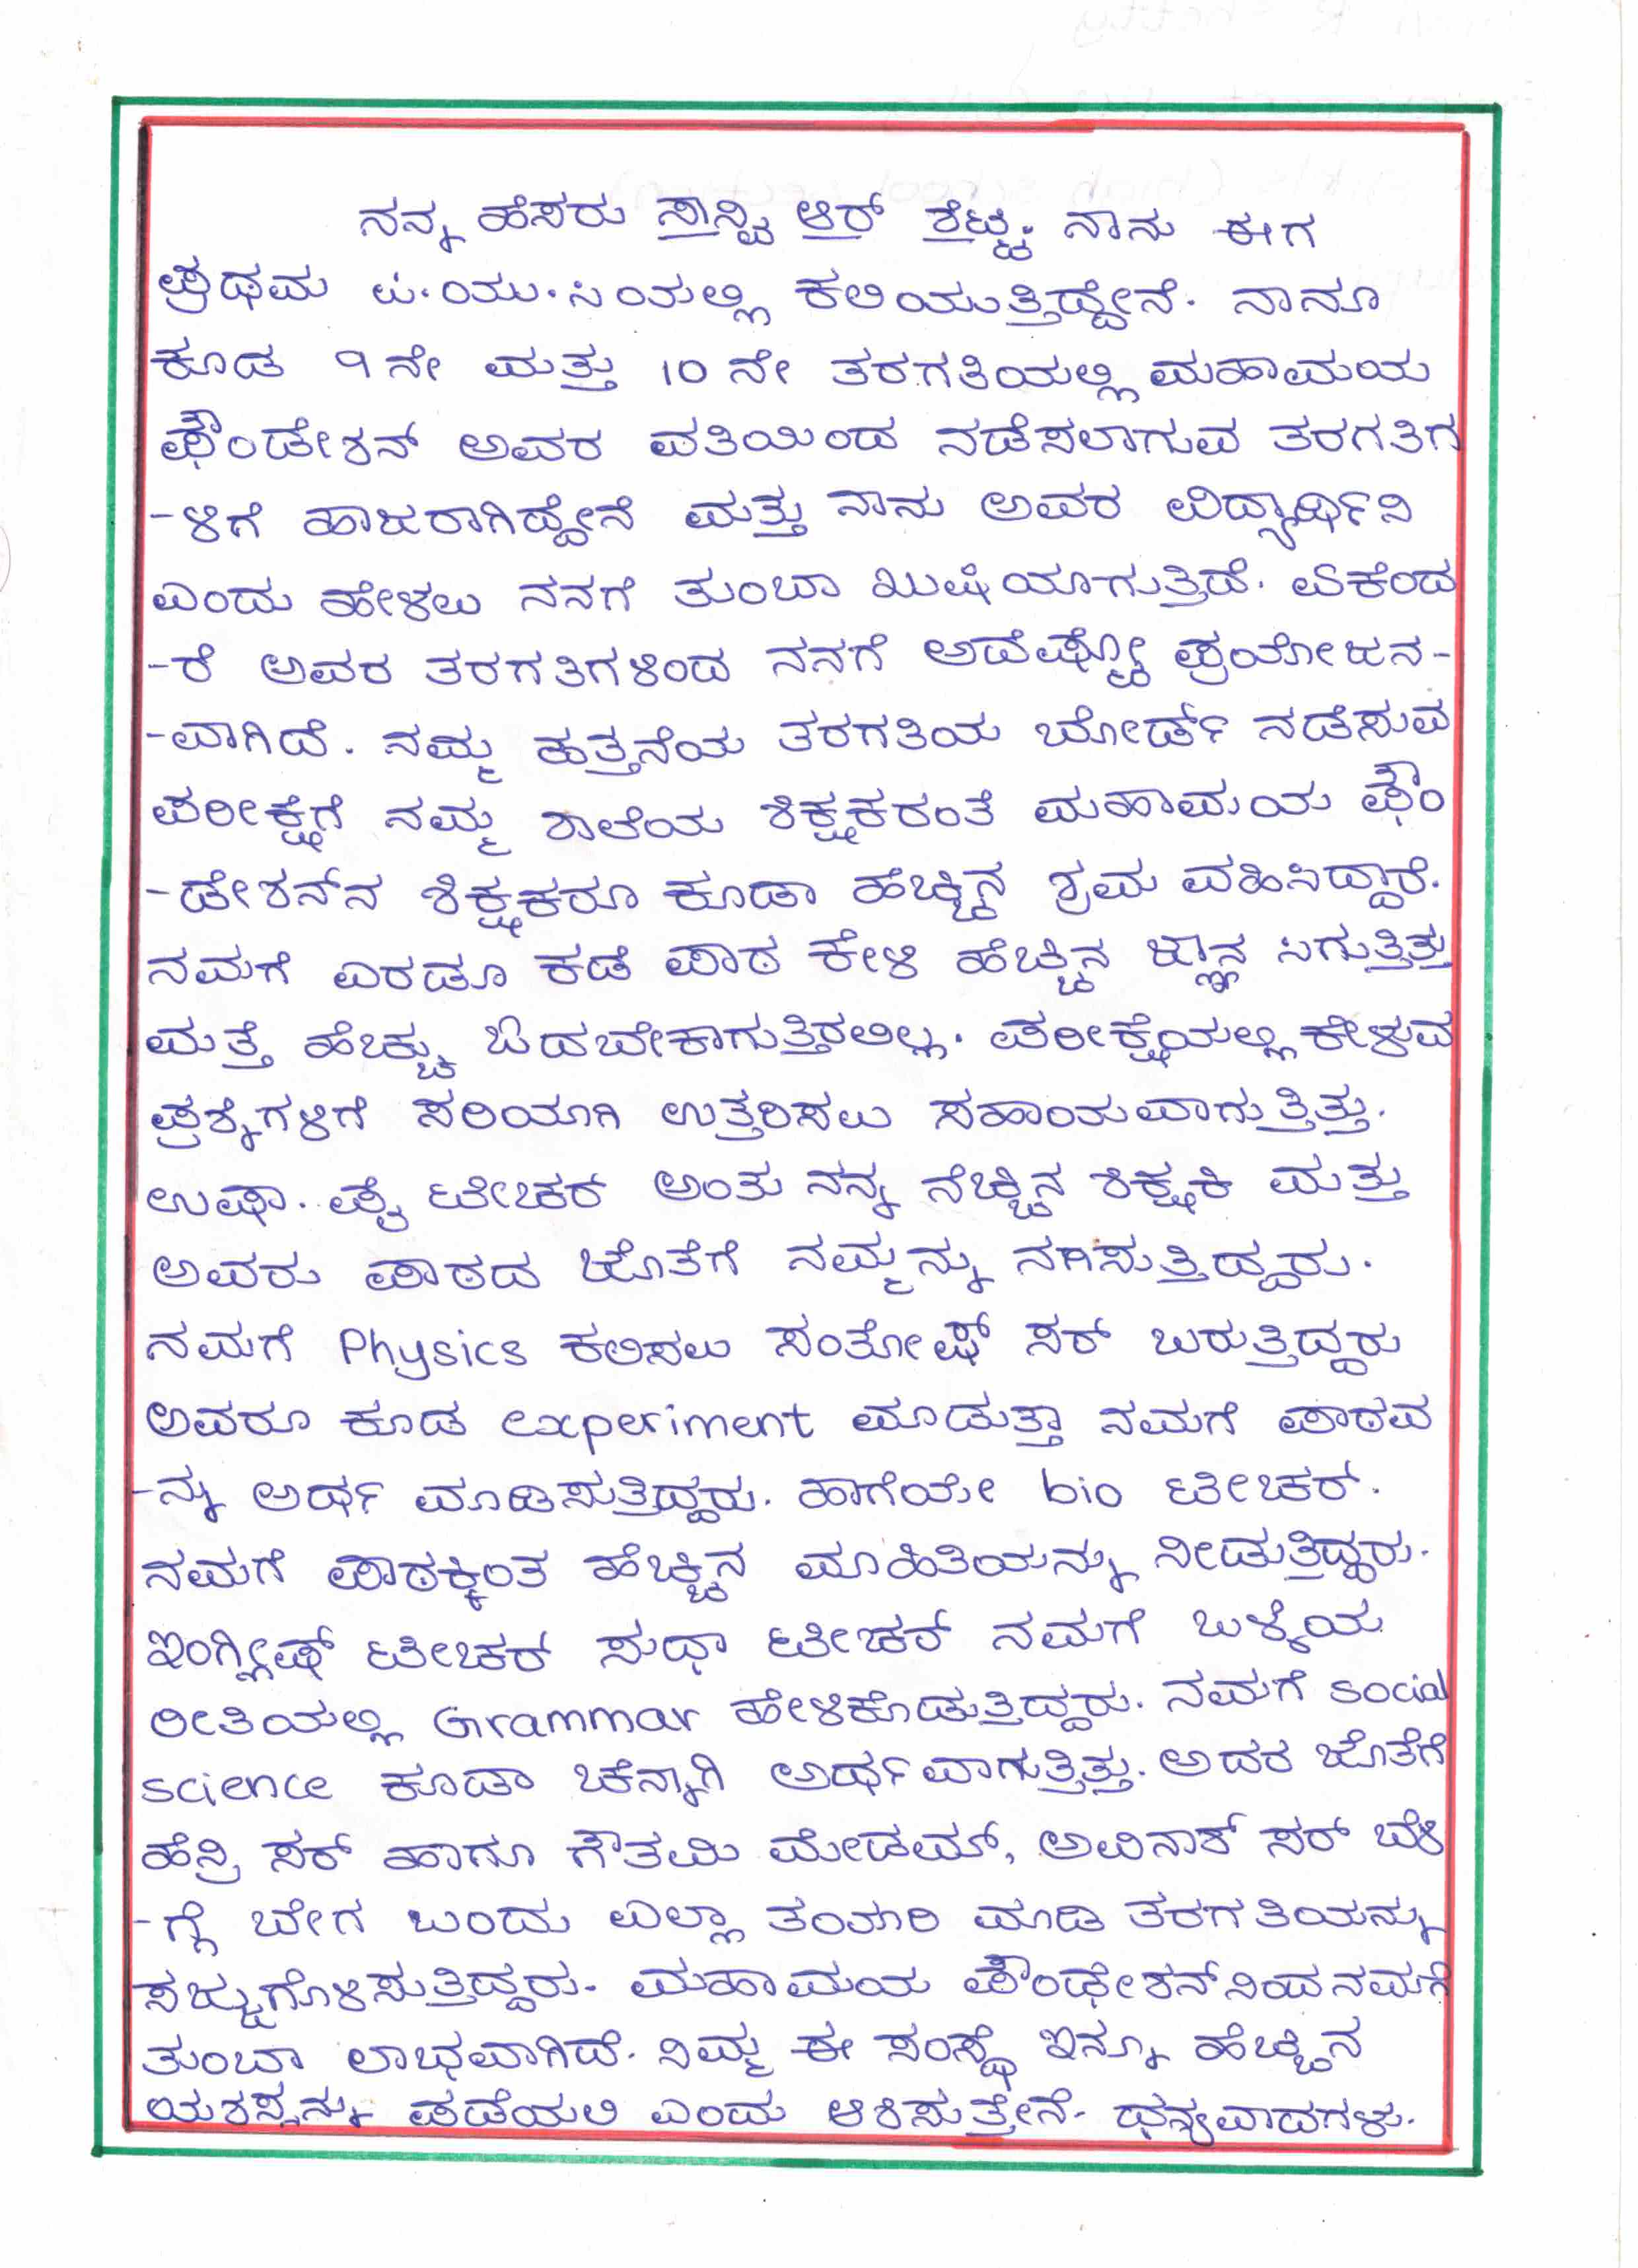 ನನ್ನ ಹೆಸರು ಸಾನ್ವಿ ಆರ್ ಶೆಟ್ಟಿ. ನಾನು ಈಗ
ಪ್ರಥಮ ಪಿ.ಯು.ಸಿಯಲ್ಲಿ ಕಲಿಯುತ್ತಿದ್ದೇನೆ. ನಾನೂ
ಕೂಡ 9 ನೇ ಮತ್ತು 10 ನೇ ತರಗತಿಯಲ್ಲಿ ಮಹಾಮಯ
ಫೌಂಡೇಶನ್ ಅವರ ವತಿಯಿಂದ ನಡೆಸಲಾಗುವ ತರಗತಿಗ
-ಳಿಗೆ ಹಾಜರಾಗಿದ್ದೇನೆ ಮತ್ತು ನಾನು ಅವರ ವಿದ್ಯಾರ್ಥಿನಿ
ಎಂದು ಹೇಳಲು ನನಗೆ ತುಂಬಾ ಖುಷಿಯಾಗುತ್ತಿದೆ. ಏಕೆಂದ
-ರೆ ಅವರ ತರಗತಿಗಳಿಂದ ನನಗೆ ಅದೆಷ್ಟೋ ಪ್ರಯೋಜನ-
-ವಾಗಿದೆ. ನಮ್ಮ ಹತ್ತನೆಯ ತರಗತಿಯ ಬೋರ್ಡ್ ನಡೆಸುವ
ಪರೀಕ್ಷೆಗೆ ನಮ್ಮ ಶಾಲೆಯ ಶಿಕ್ಷಕರಂತೆ ಮಹಾಮಯ ಫೌಂ
-ಡೇಶನ್‌ನ ಶಿಕ್ಷಕರೂ ಕೂಡಾ ಹೆಚ್ಚಿನ ಶ್ರಮ ವಹಿಸಿದ್ದಾರೆ.
ನಮಗೆ ಎರಡೂ ಕಡೆ ಪಾಠ ಕೇಳಿ ಹೆಚ್ಚಿನ ಜ್ಞಾನ ಸಿಗುತ್ತಿತ್ತು
ಮತ್ತೆ ಹೆಚ್ಚು ಓದಬೇಕಾಗುತ್ತಿರಲಿಲ್ಲ. ಪರೀಕ್ಷೆಯಲ್ಲಿ ಕೇಳುವ
ಪ್ರಶ್ನೆಗಳಿಗೆ ಸರಿಯಾಗಿ ಉತ್ತರಿಸಲು ಸಹಾಯವಾಗುತ್ತಿತ್ತು.
ಉಷಾ. ಪೈ ಟೀಚರ್ ಅಂತು ನನ್ನ ನೆಚ್ಚಿನ ಶಿಕ್ಷಕಿ ಮತ್ತು
ಅವರು ಪಾಠದ ಜೊತೆಗೆ ನಮ್ಮನ್ನು ನಗಿಸುತ್ತಿದ್ದರು.
ನಮಗೆ Physics ಕಲಿಸಲು ಸಂತೋಷ್ ಸರ್ ಬರುತ್ತಿದ್ದರು
ಅವರೂ ಕೂಡ experiment ಮಾಡುತ್ತಾ ನಮಗೆ ಪಾಠವ
-ನ್ನು ಅರ್ಥ ಮಾಡಿಸುತ್ತಿದ್ದರು. ಹಾಗೆಯೇ bio ಟೀಚರ್.
ನಮಗೆ ಪಾಠಕ್ಕಿಂತ ಹೆಚ್ಚಿನ ಮಾಹಿತಿಯನ್ನು ನೀಡುತ್ತಿದ್ದರು.
ಇಂಗ್ಲೀಷ್ ಟೀಚರ್ ಸುಧಾ ಟೀಚರ್ ನಮಗೆ ಒಳ್ಳೆಯ
ರೀತಿಯಲ್ಲಿ Grammar ಹೇಳಿಕೊಡುತ್ತಿದ್ದರು. ನಮಗೆ social
science ಕೂಡಾ ಚೆನ್ನಾಗಿ ಅರ್ಥವಾಗುತ್ತಿತ್ತು. ಅದರ ಜೊತೆಗೆ
ಹೆನ್ರಿ ಸರ್ ಹಾಗೂ ಗೌತಮಿ ಮೇಡಮ್, ಅವಿನಾಶ್ ಸರ್ ಬೆಳಿ
-ಗ್ಗೆ ಬೇಗ ಬಂದು ಎಲ್ಲಾ ತಯಾರಿ ಮಾಡಿ ತರಗತಿಯನ್ನು
ಸಜ್ಜುಗೊಳಿಸುತ್ತಿದ್ದರು. ಮಹಾಮಯ ಫೌಂಢೇಶನ್‌ನಿಂದ ನಮಗೆ
ತುಂಬಾ ಲಾಭವಾಗಿದೆ. ನಿಮ್ಮ ಈ ಸಂಸ್ಥೆ ಇನ್ನೂ ಹೆಚ್ಚಿನ
ಯಶಸ್ಸನ್ನು ಪಡೆಯಲಿ ಎಂದು ಆಶಿಸುತ್ತೇನೆ. ಧನ್ಯವಾದಗಳು.